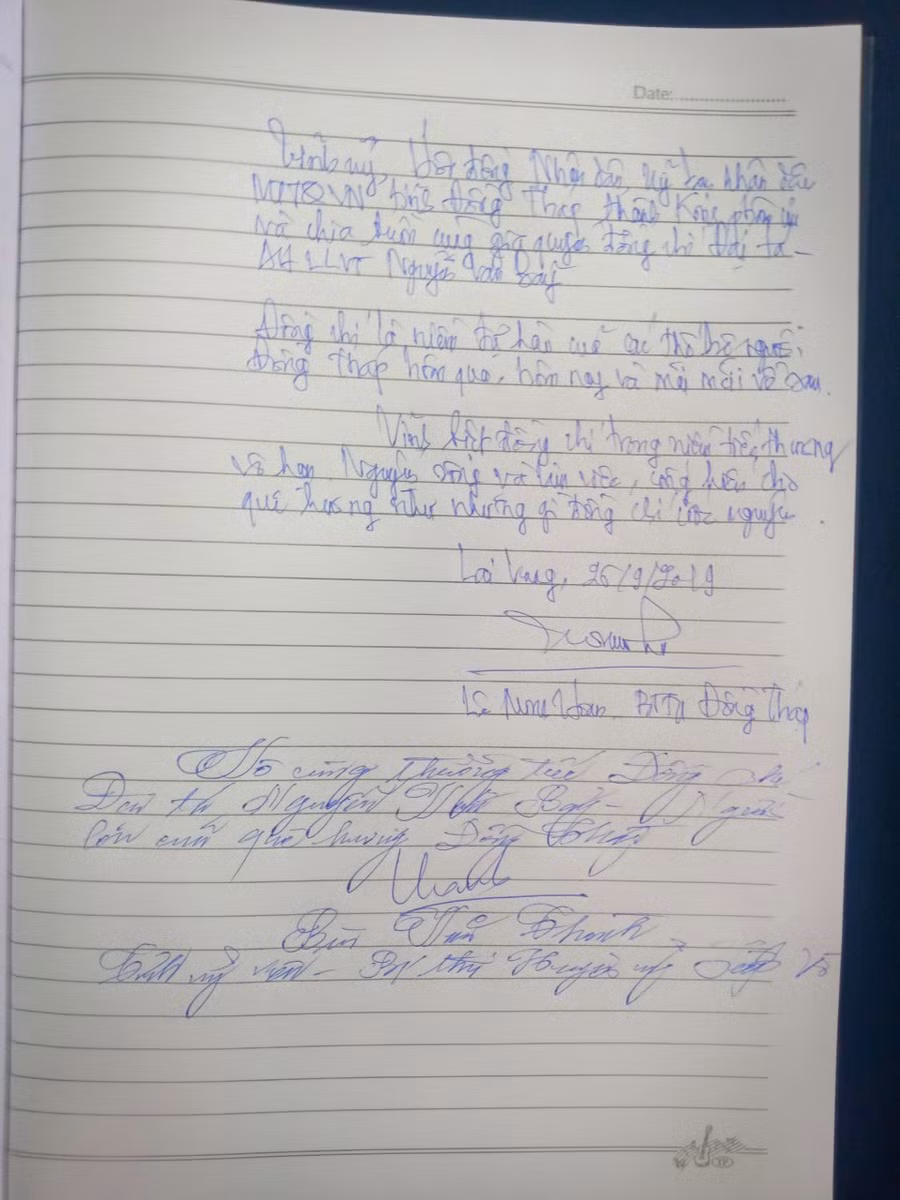 Date:
Tỉnh uỷ, Hội đồng Nhân dân, Uỷ ban nhân dân
MTTQVN tỉnh Đồng Tháp thành kính phân ưu
và chia buồn cùng gia quyến đồng chí Đại tá -
AHLLVT Nguyễn Văn Bảy
Đồng chí là niềm tự hào của các thế hệ người
Đồng Tháp hôm qua, hôm nay và mãi mãi về sau.
Vĩnh biệt đồng chí trong niềm tiếc thương
vô hạn. Nguyện sống và làm việc, cống hiến cho
quê hương như những gì đồng chí ước nguyện.
Lai Vung, 26/9/2019
Lê Minh Hoan BTTU Đồng Tháp
Vô cùng thương tiếc Đồng chí
Đại tá Nguyễn Văn Bảy - Người
con của quê hương Đồng Tháp
Bùi Thanh
Tỉnh uỷ viên - Bí thư Huyện uỷ Lấp Vò